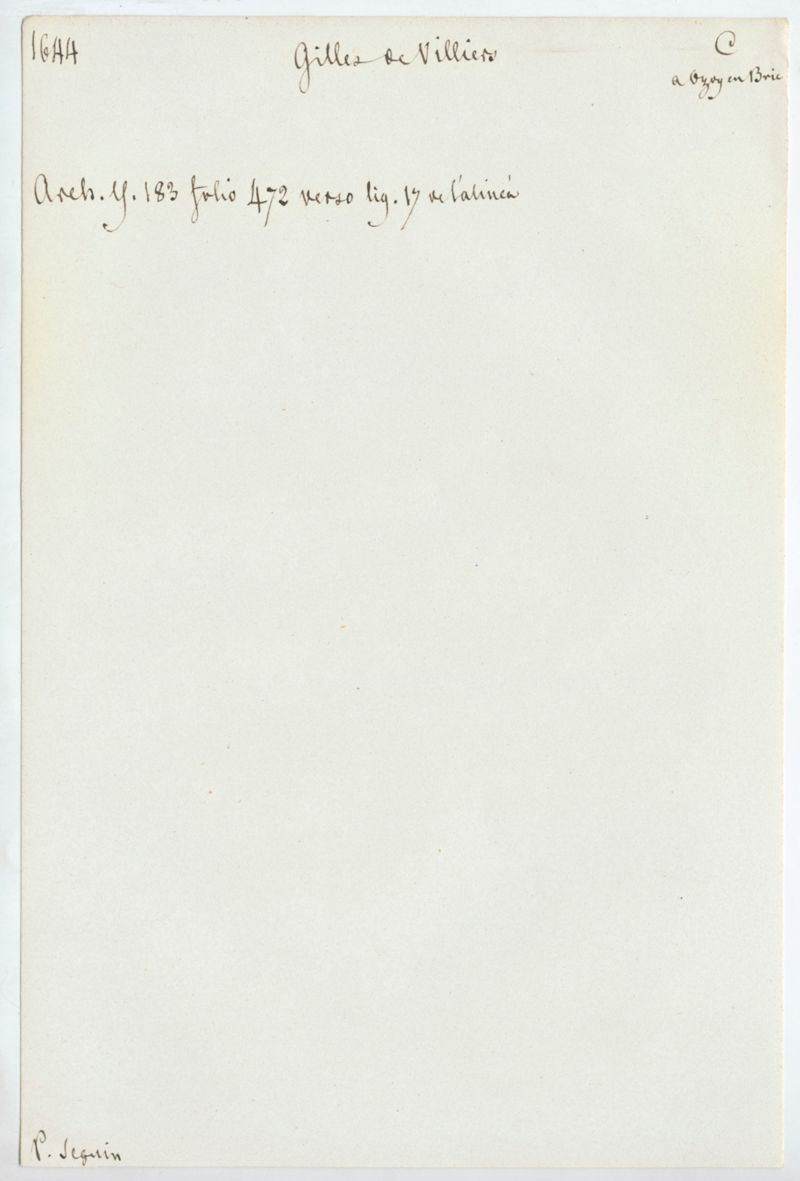 1644
Gilles de Villiers
C
a Ozoy en Brie
Arch. Y. 183 folio 472 verso lig. 17 de l'alinéa
P. Seguin